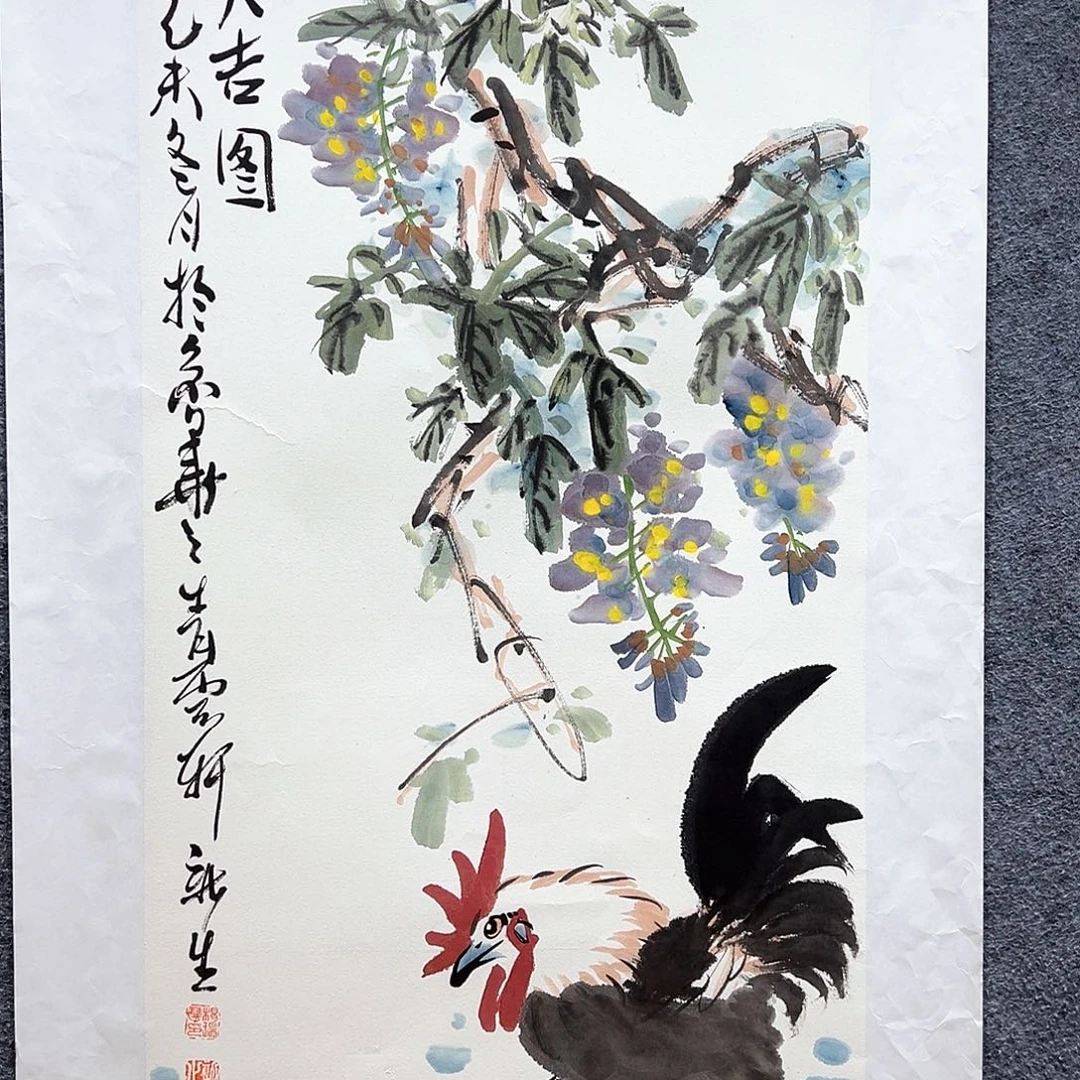 大吉图
乙未冬月於京华之青云轩 新生